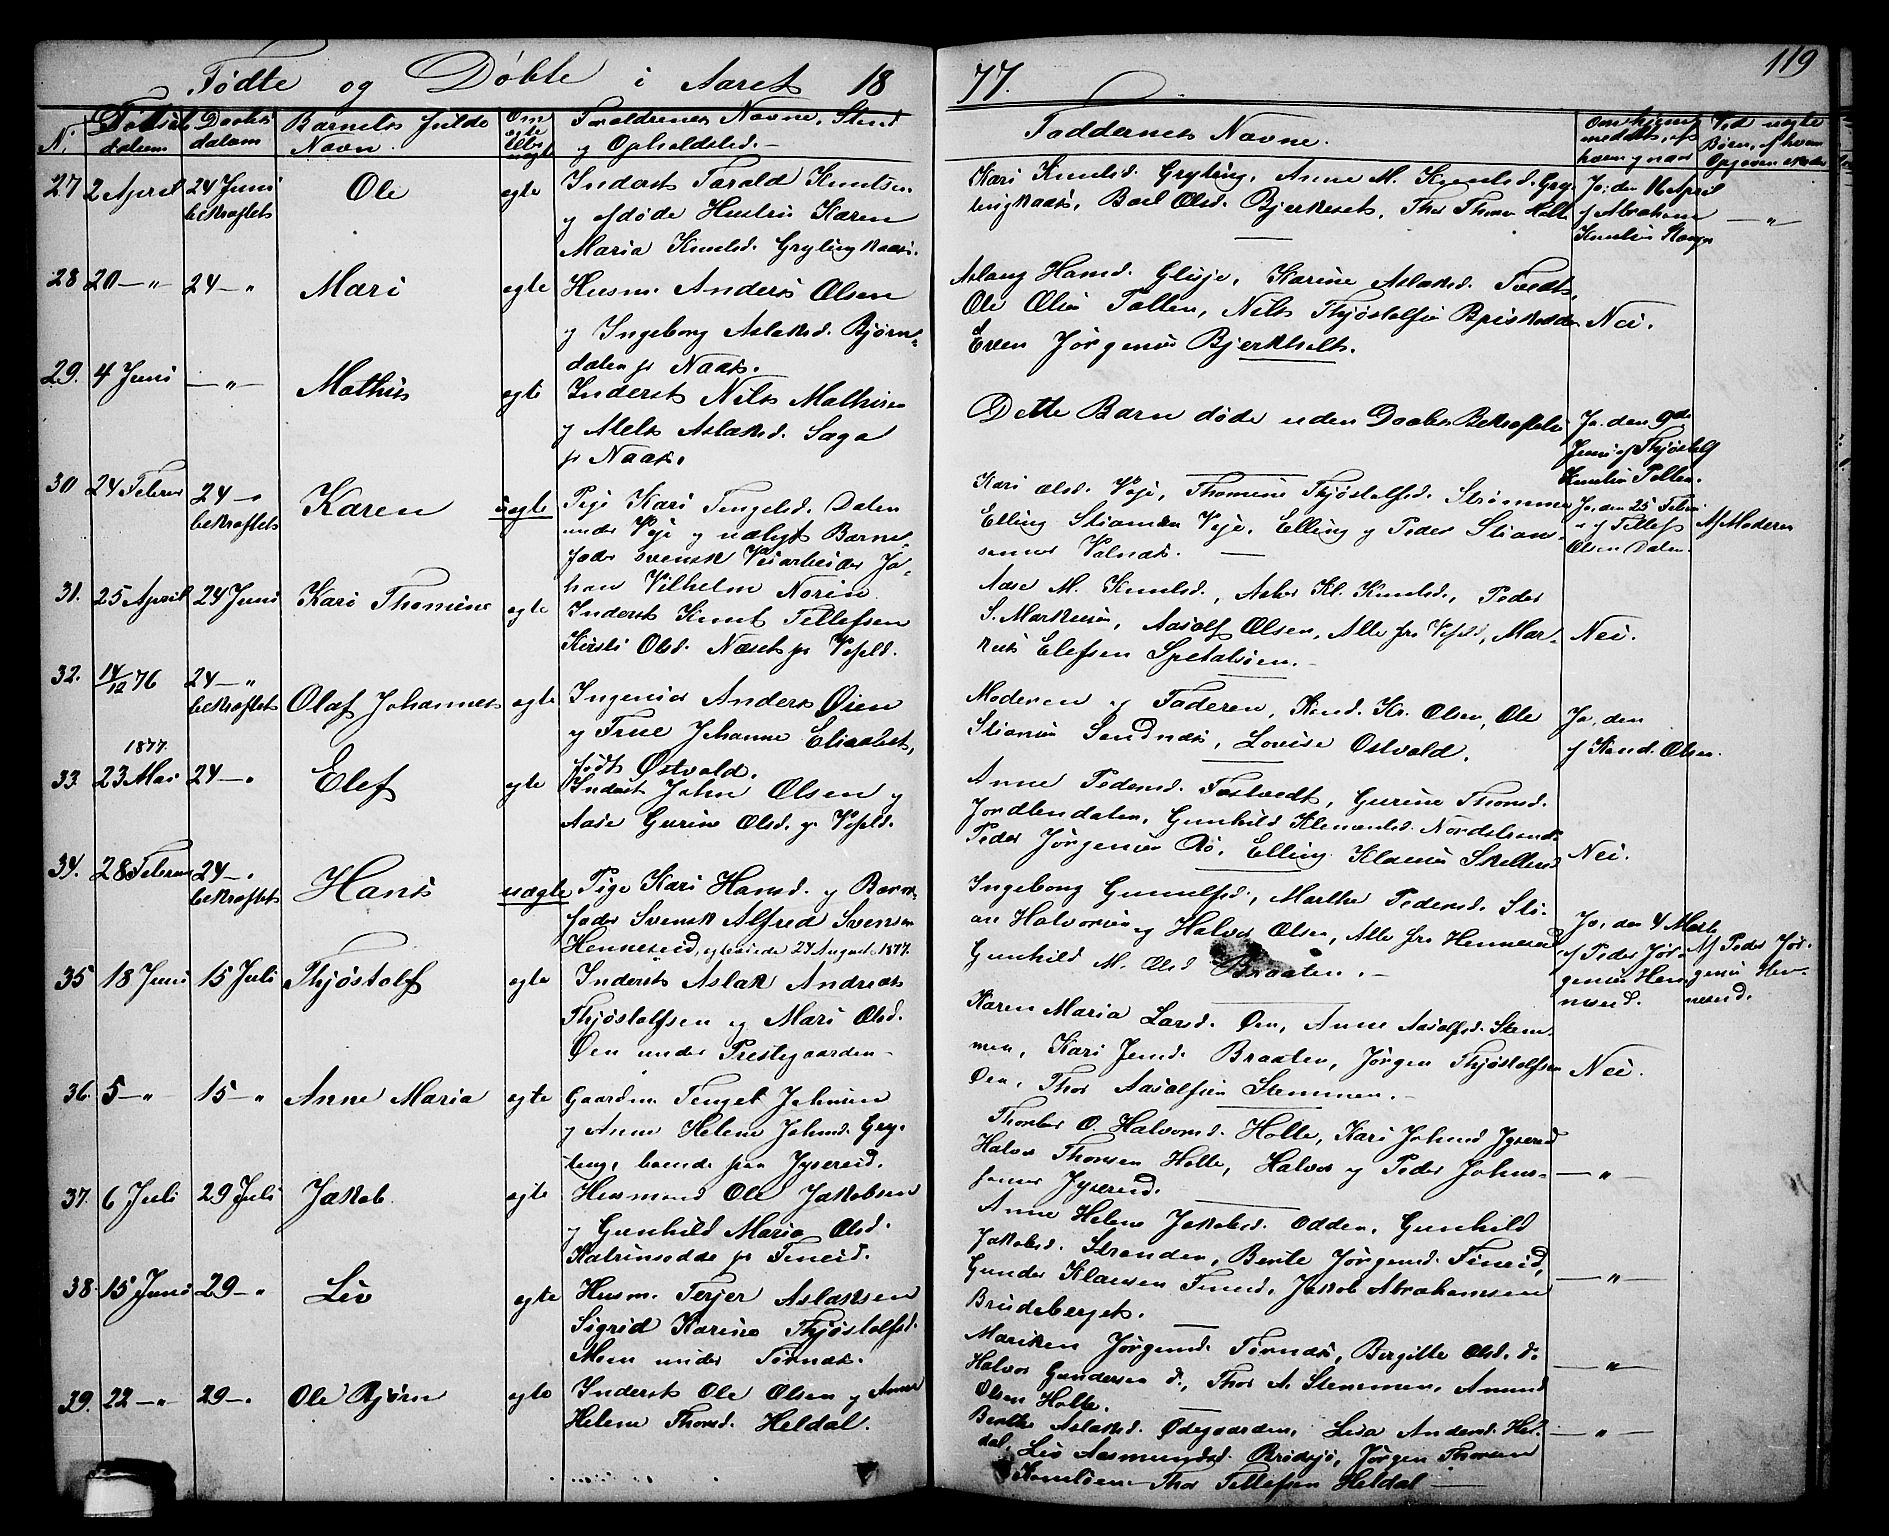 Fødte og Døbte i Aaret 18
77.
119
N. Fødsels datum Daabs datum Barnets fulde Navn. Om ægte eller uægte Forældrenes Navne, Stand og Opholdsted.
Faddernes Navne.
Om hjemmedøbt, af hvem og naar
Ved uægte Børn, af hvem Opgiven skeder
27 2 April 24 Juni bekræftet Ole egte Inderst Tarald Knutsen
y afdøde Hustru Karen
Maria Knutsd. Gryting
Kari Knutsd. Gryting, Anne M. Knutsd. Gry-
Boel Olsd. Bjerkeset, Thor Thorsen Holte
Ja, den 16 April
f Abraham
Knutsen
— „ —
28 20 — „ 24 — „ Mari egte Husm. Anders Olsen
y Ingeborg Aslaksd. Bjørn-
dalen p. Naas.
Aslaug Hansd. Glesje, Karine Aslaksd. Tvedt,
Ole Olsen Tollen, Nils Thjøstolfsen
Even Jørgensen Bjerkholt.
Nei.
29. 4 Juni — „ — Mathis egte Inderst Nils Mathisen
y Aslaksd. Saga
p. Naas.
Dette Barn døde uden Daabs Bekræftelse
Ja, den 9de
Juni f Thjøstolf
Knutsen Tollen.
30 24 Februar 24 — „ bekræftet Karen uegte Pige Kari Tengelsd. Dalen
under Veje y udlagt Barne-
fader svensk Veiarbeider Jo-
han Vilhelm Norin.
Kari Olsd. Veje, Thomine Thjøstolfsd. Strømmen
Elling Stiansen Veje, Elling y Peder Stian-
senner Valnæs.
Ja, den 25 Februar
f Tellef
Olsen Dalen.
Af Moderen
31. 25 April 24 Juni Kari Thomine egte Inderst Knut Tellefsen
Kirsti Olsd. Næset p. Vefald.
Aase M. Knutsd., Knutsd., Peder
S. Markusen, Aasolf Olsen, Alle fra Vefald, Mar-
kus Elefsen Spetalsien.
Nei.
32. 14/12 76 24 — „ bekræftet Olaf Johannes egte Ingeniør Anders Øien
y Frue Johanne Elisabet,
født Østvold.
Moderen y Faderen, Kand. Kr. Olsen, Ole
Stiansen Sandnæs, Lovise Ostvold.
Ja, den
f Kand. Olsen.
1877.
33 23 Mai 24 — „ Elef egte Inderst John Olsen y
Aase Gurine Olsd. p. Vefald.
Anne Pedersd. Fostvedt, Gurine Thorsd.
Jordbendalen, Gunhild Klemetsd. Nordstrand
Peder Jørgensen Rø, Elling Klausen
Nei.
34. 28 Februar 24 — „ bekræftet Hans uægte Pige Kari Hansd. y Barne-
fader Svensk Alfred Svensen
Henneseid, egteviede 24 August 1877.
Ingeborg Gunulfsd., Marthe Pedersd. Sti-
an Halvorsen y Halvor Olsen, Alle fra Henneseid
Gunhild M. Olsd. Braaten.
Ja, den 4 Marts
f Peder Jør-
gensen Hen-
neseid.
Af Peder Jør-
gensen Hen-
neseid.
35 18 Juni 15 Juli Thjøstolf egte Inderst Aslak Andreas
Thjøstolfsen y Mari Olsd.
Øen under Prestegaarden
Karen Maria Larsd. Øen, Anne Aasolfsd. Stem-
men, Kari Jensd. Braaten, Jørgen Thjøstolfsen
Øen, Thor Aasolfsen Stemmen.
Nei.
36. 5 — „ 15 — „ Anne Maria egte Gaardm. Tengel Johnsen
y Anne Helene Johnsd. Gry-
ting, boende paa Jysereid.
Thorbor O. Halvorsd. Holte, Kari Johnsd Jysereid
Halvor Thorsen Holte, Halvor y Peder Johns-
senner Jysereid.
— „ —
37. 6 Juli 29 Juli Jakob egte Husmand Ole Jakobsen
y Gunhild Maria Olsd.
Katrinsodde p. Fineid.
Anne Helene Jakobsd. Odden, Gunhild
Jakobsd. Stranden, Bente Jørgensd. Fineid,
Gunder Klausen Fineid, Jakob Abrahamsen
Brudeberget.
— „ —
38. 15 Juni 29 — „ Liv egte Husm. Terjer Aslaksen
Sigrid Karine Thjøstolfsd.
Moen under Tørnæs.
Mariken Jørgensd. Tørnæs, Bergitte Olsd. d.
Halvor Gundersen d., Thor A. Stemmen, Amund
Olsen Holte.
— „ —
39. 22 — „ 29 — „ Ole Bjørn egte Inderst Ole Olsen y Anne
Helene Thorsd. Heldal.
Berthe Aslaksd. Ødegaarden, Lisa Andersd. Hel-
dal, Liv Aasmundsd. Brødsjø, Jørgen Thorsen
Thor Tellefsen Heldal
— „ —